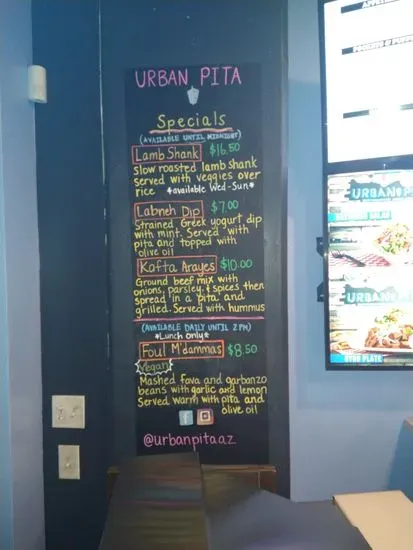 URBAN PITA
Specials
(AVAILABLE UNTIL MIDNIGHT)
Lamb Shank $16.50
slow roasted lamb shank
served with veggies over
rice *available Wed-Sun*
Labneh Dip $7.00
Strained Greek yogurt dip
with mint. Served with
pita and topped with
olive oil
Kafta Arayes $10.00
Ground beef mix with
onions, parsley, & spices then
spread in a pita and
grilled. Served with hummus
(AVAILABLE DAILY UNTIL 2PM)
*Lunch only*
Foul M'dammas $8.50
Vegan
Mashed fava and garbanzo
beans with garlic and lemon
Served warm with pita and
olive oil
f
@urbanpitaaz
URBAN P
URBAN P
GYRO PLATE